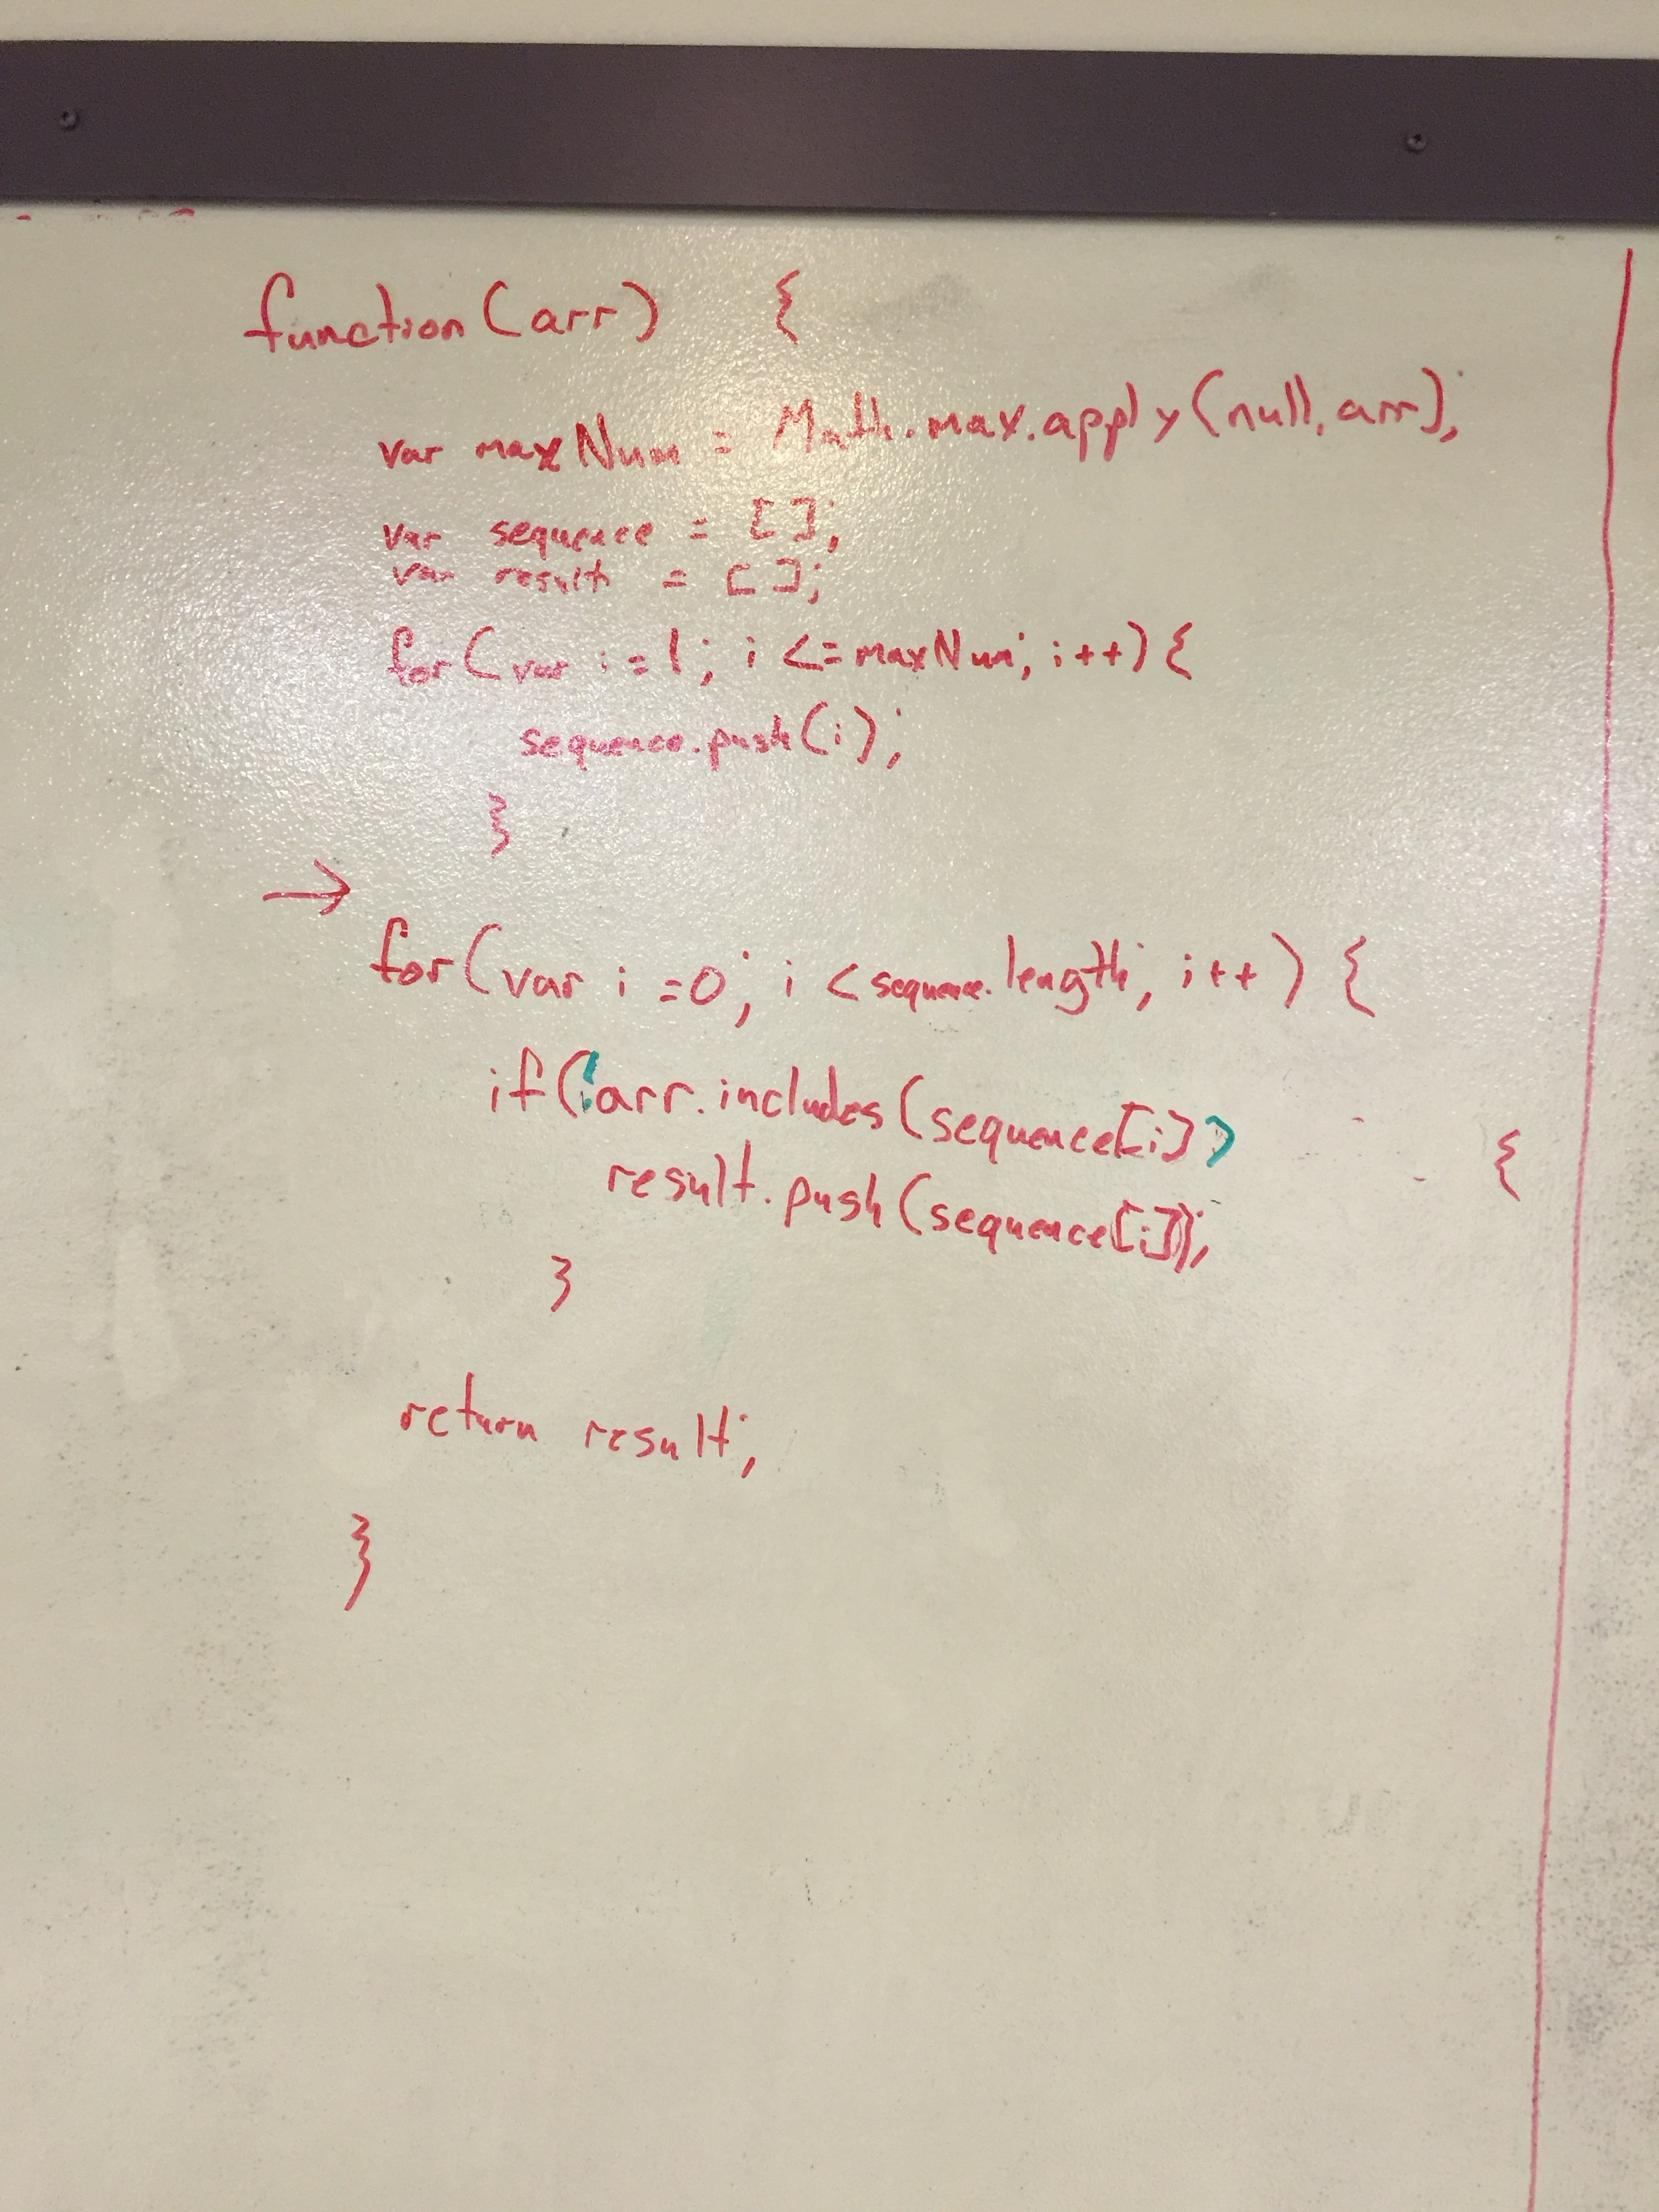 function(arr) {
var maxNum = Math.max.apply(null, arr);
var sequence = [];
var result = [];
for(var i=1; i <=maxNum; i++){
sequence.push(i);
}
→
for(var i=0; i < sequence.length; i++) {
if(!arr.includes(sequence[i]) {
result.push(sequence[i]);
}
return result;
}